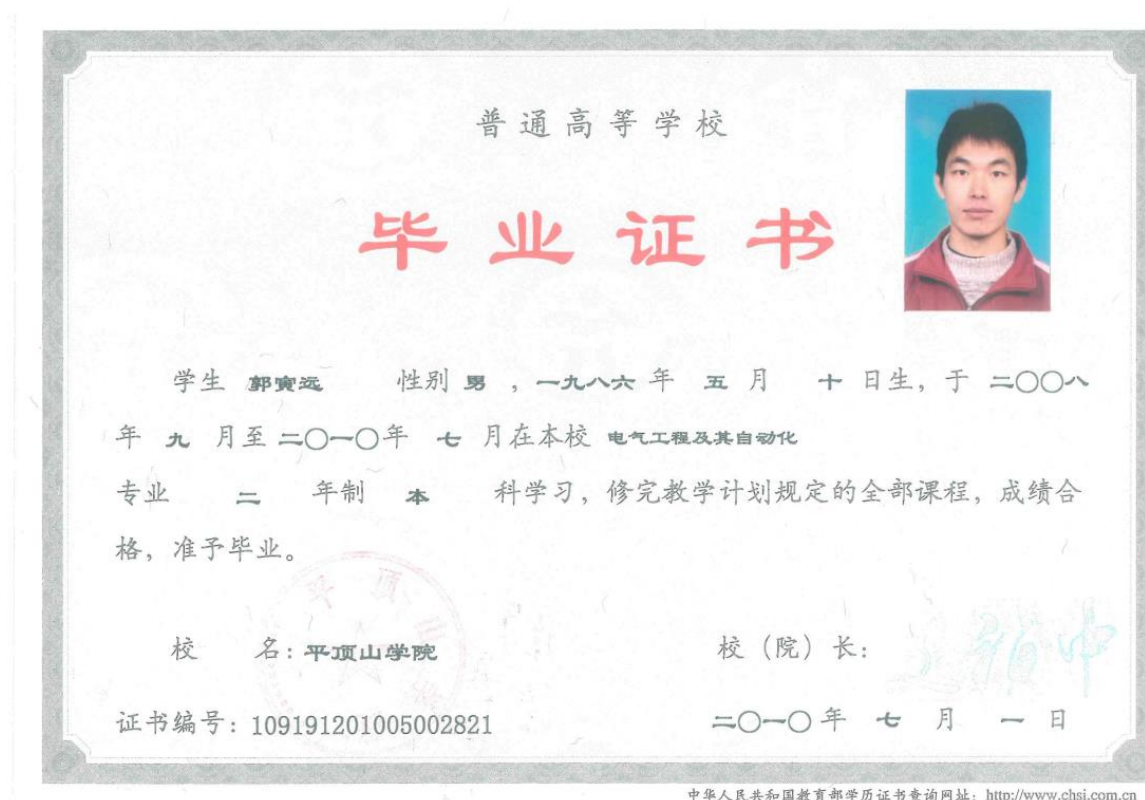 普通高等学校
毕业证书
学生 郭寅远 性别 男 ,一九八六 年 五 月 十 日生,于 二〇〇八
年 九 月至 二〇一〇年 七 月在本校 电气工程及其自动化
专业 二 年制 本 科学习,修完教学计划规定的全部课程,成绩合
格,准予毕业。
平顶山
校 名:平顶山学院 校(院)长:
证书编号:109191201005002821 二〇一〇 年 七 月 一 日
中华人民共和国教育部学历证书查询网址:http://www.chsi.com.cn